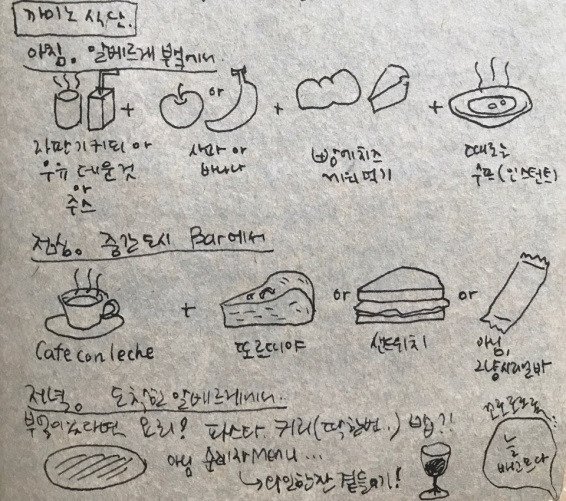 까미노 식단.
아침. 알베르게 부엌에서.
or
자판기커피 아
우유 데운것
아
주스
사과 아
바나나
빵에치즈
끼워먹기
때로는
수프(인스턴트)
점심. 중간도시 Bar에서
or
or
Cafe con leche
또르띠야
샌드위치
아님,
그냥시리얼바
저녁. 도착한 알베르게에서.
부엌이있다면 요리! 파스타. 커리(딱한번.) 밥?!
아님 순례자menu...
→와인한잔 곁들이기!
꼬로로로록
늘
배고프다